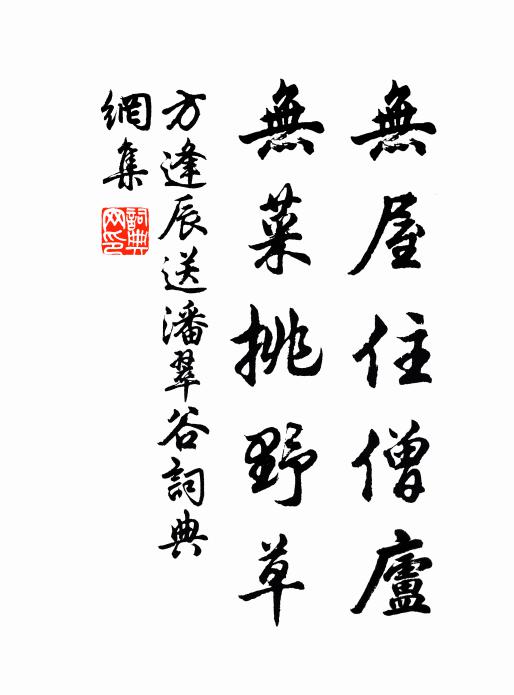 無屋住僧廬
無菜挑野草
方逢辰送潘翠谷詞典
網集
詞典網印